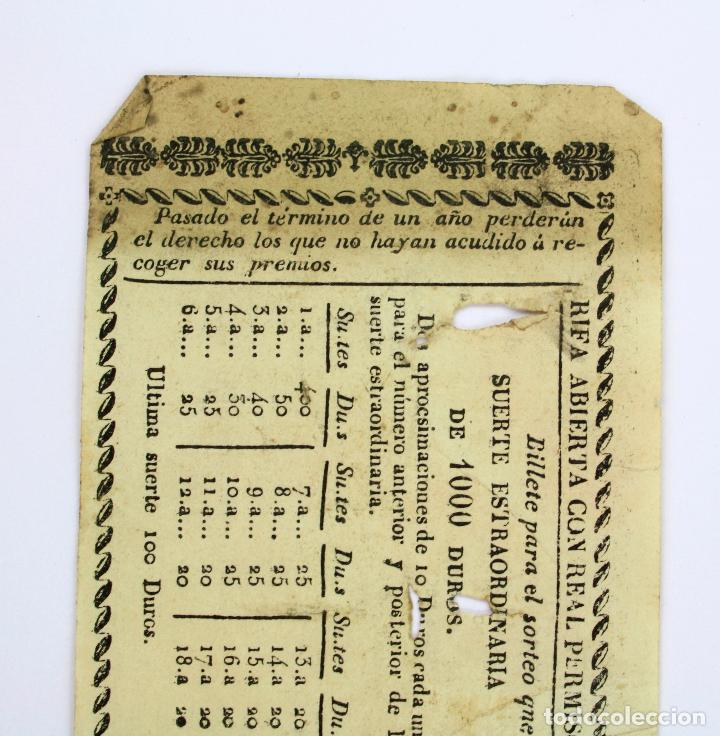 Pasado el término de un año perderán
el derecho los que no hayan acudido á re-
coger sus premios.
RIFA ABIERTA CON REAL PERMIS
Billete para el sorteo que
SUERTE ESTRAORDINARIA
DE 1000 DUROS.
Dos aprocsimaciones de 10 Duros cada un
para el número anterior y posterior de l
suerte estraordinaria.
Su.tes Du.s Su.tes Du.s Su.tes Du.
1.a... 400 7.a... 25 13.a 20
2.a... 50 8.a... 25 14.a 20
3.a... 40 9.a... 25 15.a 20
4.a... 30 10.a... 25 16.a 20
5.a... 25 11.a... 20 17.a 20
6.a... 25 12.a... 20 18.a 20
Ultima suerte 100 Duros.
todocoleccion